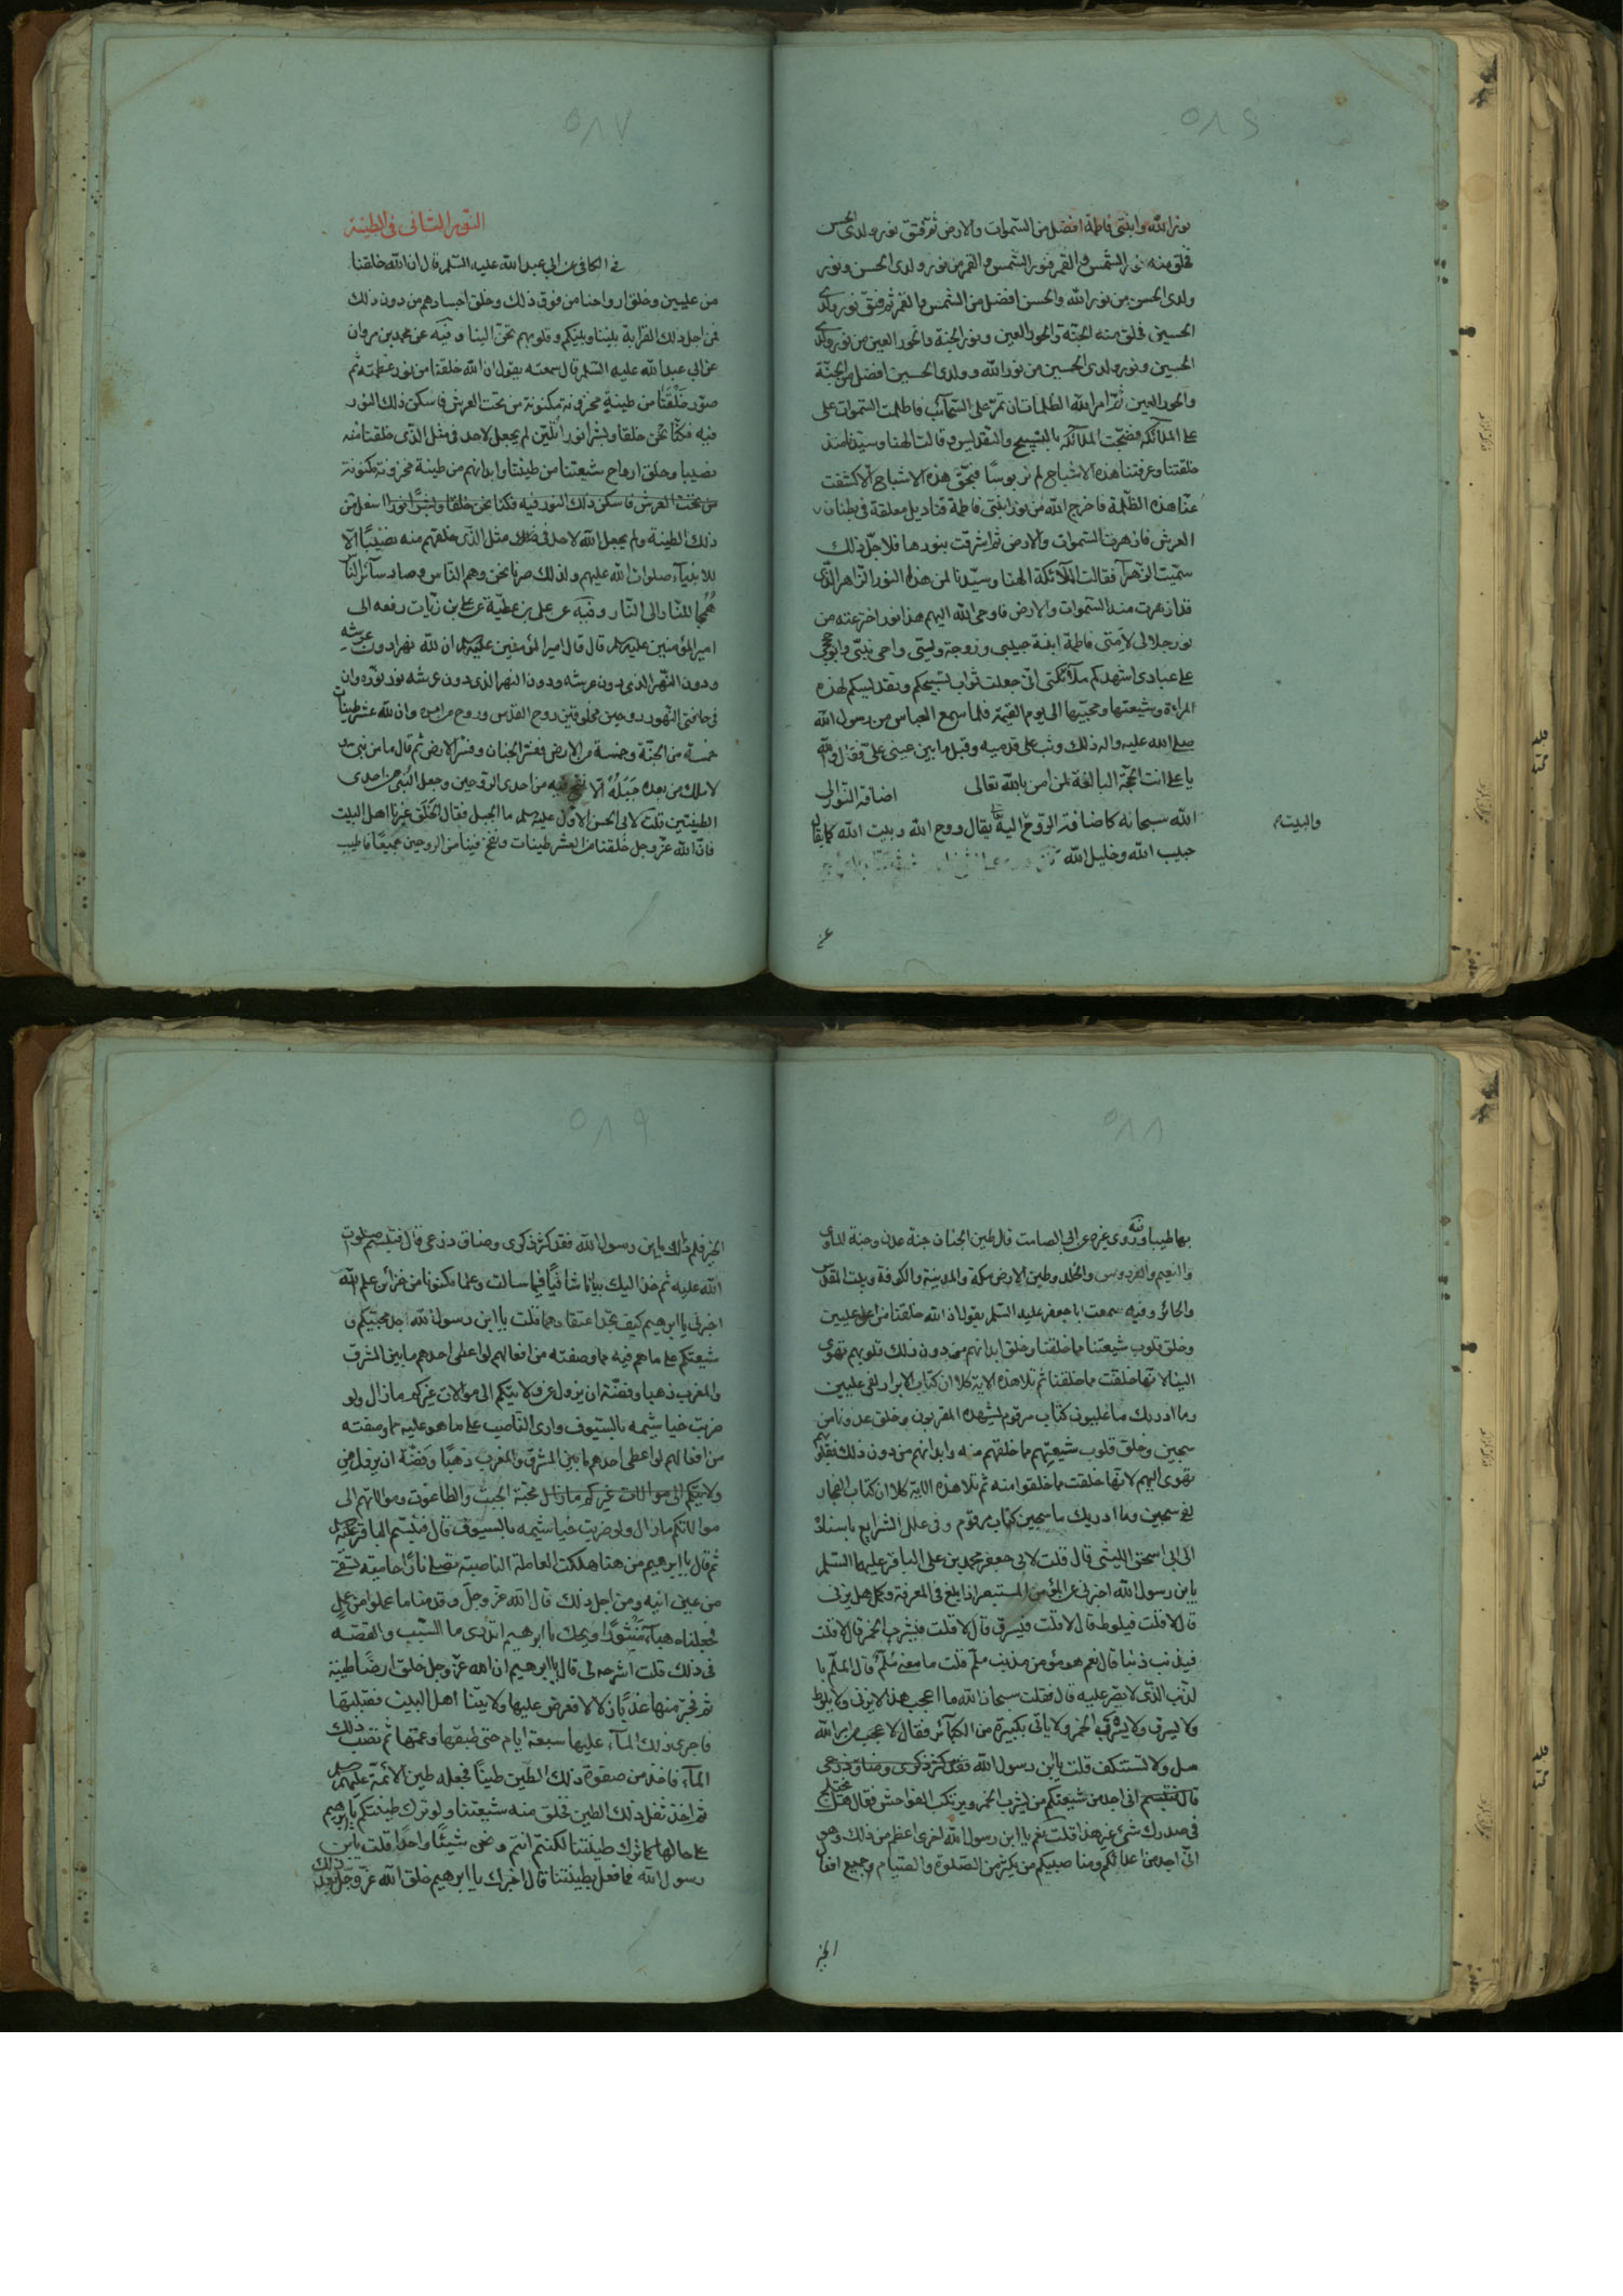 ٥٨٦
نور الله وابنتی فاطمة افضل من السّموات والارض ثمّ فتق نور ولدی الحسن
فخلق منه نور الشّمس والقمر فنور الشّمس والقمر من نور ولدی الحسن ونور
ولدی الحسن من نور الله والحسن افضل من الشّمس والقمر ثم فتق نور ولدی
الحسین فخلق منه الجنّة والحور العین ونور الجنّة والحور العین من نور ولدی
الحسین ونور ولدی الحسین من نور الله وولدی الحسین افضل من الجنّة
والحور العین ثمّ امر الله الظلمات ان تمرّ علی السّحائب فاظلمت السّموات علی
علی الملآئکة فضجّت الملآئکة بالتسبیح والتّقدیس وقالت الهنا وسیّدنا منذ
خلقتنا وعرفتنا هذه الاشباح لم نر بوسًا فبحقّ هذه الاشباح الّا کشفت
عنّا هذه الظّلمة فاخرج الله من نور ابنتی فاطمة قنادیل معلقة فی بطنان
العرش فازهرت السّموات والارض ثم اشرقت بنورها فلاجل ذلک
سمّیت الزّهرآء فقالت الملآئکة الهنا وسیّدنا لمن هذا النور الزاهر الّذی
قد ازهرت منه السّموات والارض فاوحی الله الیهم هذا نور اخترعته من
نور جلالی لامتی فاطمة ابنة حبیبی وزوجة ولیّی واخی نبیّی وابو حججی
علی عبادی اشهدکم ملآئکتی انّی جعلت ثواب تسبیحکم وتقدیسکم لهذه
المراءة وشیعتها ومحبّیها الی یوم القیمة فلما سمع العباس من رسول الله
صلی الله علیه واله ذلک وثب علی قدمیه وقبل ما بین عینی علیّ فقال والله
یا علی انت الحجّة البالغة لمن امن بالله تعالی اضافة النّور الی
الله سبحانه کاضافة الرّوح الیه یقال روح الله وبیت الله کما یقال
والبیت
حبیب الله وخلیل الله
٥٨٧
النّور الثّانی فی الطینة
فی الکافی عن ابی عبد الله علیه السّلم قال ان الله خلقنا
من علیین وخلق ارواحنا من فوق ذلک وخلق اجسادهم من دون ذلک
فمن اجل ذلک القرابة بیننا وبینکم وقلوبهم تحنّ الینا وفیه عن محمد بن مروان
عن ابی عبد الله علیه السّلم قال سمعته یقول ان الله خلقنا من نور عظمته ثم
صوّر خَلْقَنا من طینة مخزونة مکنونة من تحت العرش فاسکن ذلک النور
فیه فکنّا نحن خلقا وبشرا نورانیّین لم یجعل لاحد فی مثل الذی خلقنا منه
نصیبا وخلق ارواح شیعتنا من طینتنا وابدانهم من طینة مخزونة مکنونة
من تحت العرش فاسکن ذلک النور فیه فکنا نحن خلقا وبشرًا نورا اسفل من
ذلک الطینة ولم یجعل الله لاحد فی مثل الذی خلقهم منه نصیبًا الّا
للانبیآء صلوات الله علیهم ولذلک صرنا نحن وهم النّاس وصار سآئر النّاس
هُمجا للنّار والی النّار وفیه عن علی بن عطیّة عن علی بن رئاب رفعه الی
امیر المؤمنین علیه السلم قال قال امیر المؤمنین علیه السلم ان لله نهرا دون عرشه
ودون النّهر الذی دون عرشه ودون النهر الذی دون عرشه نور نوّره وان
فی حافتی النّهر روحین مخلوقتین روح القدس وروح من امره وان لله عشر طینات
خمسة من الجنّة وخمسة من الارض ففسّر الجنان وفسّر الارض ثم قال ما من نبی
لا ملک من بعده جَبَلَهُ الّا نفخ فیه من احدی الرّوحین وجعل النّبی من احدی
الطینتین قلت لابی الحسن الاوّل علیه السلم ما الجبل فقال الخَلق غیرنا اهل البیت
فانّ الله عزّ وجل خلقنا من العشر طینات ونفخ فینا من الروحین جمیعًا فاطیب
٥٨٨
بها طیبا وروی غیره عن ابی الصامت قال طین الجنان جنة عدن وجنة الماوی
والنعیم والفردوس والخلد وطین الارض مکة والمدینة والکوفة وبیت المقدس
والحائر وفیه سمعت ابا جعفر علیه السّلم یقول ان الله خلقنا من اعلی علیین
وخلق قلوب شیعتنا مما خلقنا وخلق ابدانهم من دون ذلک قلوبهم تهوی
الینا لانها خلقت مما خلقنا ثم تلا هذه الایة کلا ان کتاب الابرار لفی علیین
وما ادریک ما علیون کتاب مرقوم یشهده المقربون وخلق عدونا من
سجین وخلق قلوب شیعتهم مما خلقهم منه وابدانهم من دون ذلک فقلوبهم
تهوی الیهم لانها خلقت مما خلقوا منه ثم تلا هذه الایة کلا ان کتاب الفجار
لفی سجین وما ادریک ما سجین کتاب مرقوم وفی علل الشرایع باسناده
الی ابی اسحق اللیثی قال قلت لابی جعفر محمد بن علی الباقر علیهما السّلم
یا بن رسول الله اخبرنی عن المؤمن المستبصر اذا بلغ فی المعرفة وکمل هل یزنی
قال لا قلت فیلوط قال لا قلت فیسرق قال لا قلت فیشرب الخمر قال لا قلت
فیذنب ذنبا قال نعم هو مؤمن مذنب ملمّ قلت ما معنی مُلمّ قال الملمّ با
لذّنب الذّی لا یصرّ علیه قال فقلت سبحان الله ما اعجب هذا لا یزنی ولا یلوط
ولا یسرق ولا یشرب الخمر ولا یاتی بکبیرة من الکبآئر فقال لا عجب من امر الله
سل ولا تستنکف قلت یابن رسول الله فقد کثر ذکری وضاق ذرعی
قال فتبسم انی اجد من شیعتکم من یشرب الخمر ویرتکب الفواحش فقال هل یختلج
فی صدرک شئ غیر هذا قلت نعم یا ابن رسول الله اخری اعظم من ذلک وهو
انّی اجد من اعدائکم ومناصبیکم من یکثر من الصّلوة والصّیام وجمیع افعال
الخیر
٥٨٩
الخیر فلم ذلک یابن رسول الله فقد کثر ذکری وضاق ذرعی قال فتبسم صلوات
الله علیه ثم خذ الیک بیانا شافیًا فیما سالت وعلما مکنونا من خزائن علم الله
اخبرنی یا ابرهیم کیف تجد اعتقادهما قلت یا ابن رسول الله اجد محبیکم و
شیعتکم علی ما هم فیه مما وصفته من افعالهم لو اعطی احدهم ما بین المشرق
والمغرب ذهبا وفضّة ان یزول عن ولایتکم الی موالات غیرکم ما زال ولو
ضربت خیاشیمه بالسّیوف واری النّاصب علی ما هو علیه مما وصفته
من افعالهم لو اعطی احدهم ما بین المشرق والمغرب ذهبًا وفضّة ان یزول عن
ولایتکم الی موالات غیرکم ما زال محبّة الجبت والطاغوت وموالاتهم الی
موالاتکم ما زال ولو ضربت خیاشیمه بالسیوف قال فتبسّم الباقر علیه السلم
ثم قال یا ابرهیم من هنا هلکت العاملة النّاصبة تصلی نارًا حامیة تسقی
من عین انیة ومن اجل ذلک قال الله عزّ وجلّ وقدمنا ما عملوا من عملٍ
فجعلناه هبآء منثورًا ویحک یا ابرهیم اتدری ما السّبب والقصّة
فی ذلک قلت اشرحه لی قال یا ابرهیم ان الله عزّ وجل خلق ارضًا طیبة
ثم فجّر منها عذبًا زلالا فعرض علیها ولایتنا اهل البیت فقبلتها
فاجری ذلک المآء علیها سبعة ایام حتی طبّقها وعمّتها ثم نضب ذلک
المآء فاخذ من صفوة ذلک الطّین طینًا فجعله طین الائمّة علیهم السلم
ثم اخذ ثفل ذلک الطین فخلق منه شیعتنا ولو ترک طینتکم یا ابرهیم
علی حالها کما ترک طینتنا لکنتم انتم ونحن شیئًا واحدًا قلت یابن
رسول الله فما فعل بطینتنا قال اخبرک یا ابرهیم خلق الله عزّ وجلّ بعد ذلک